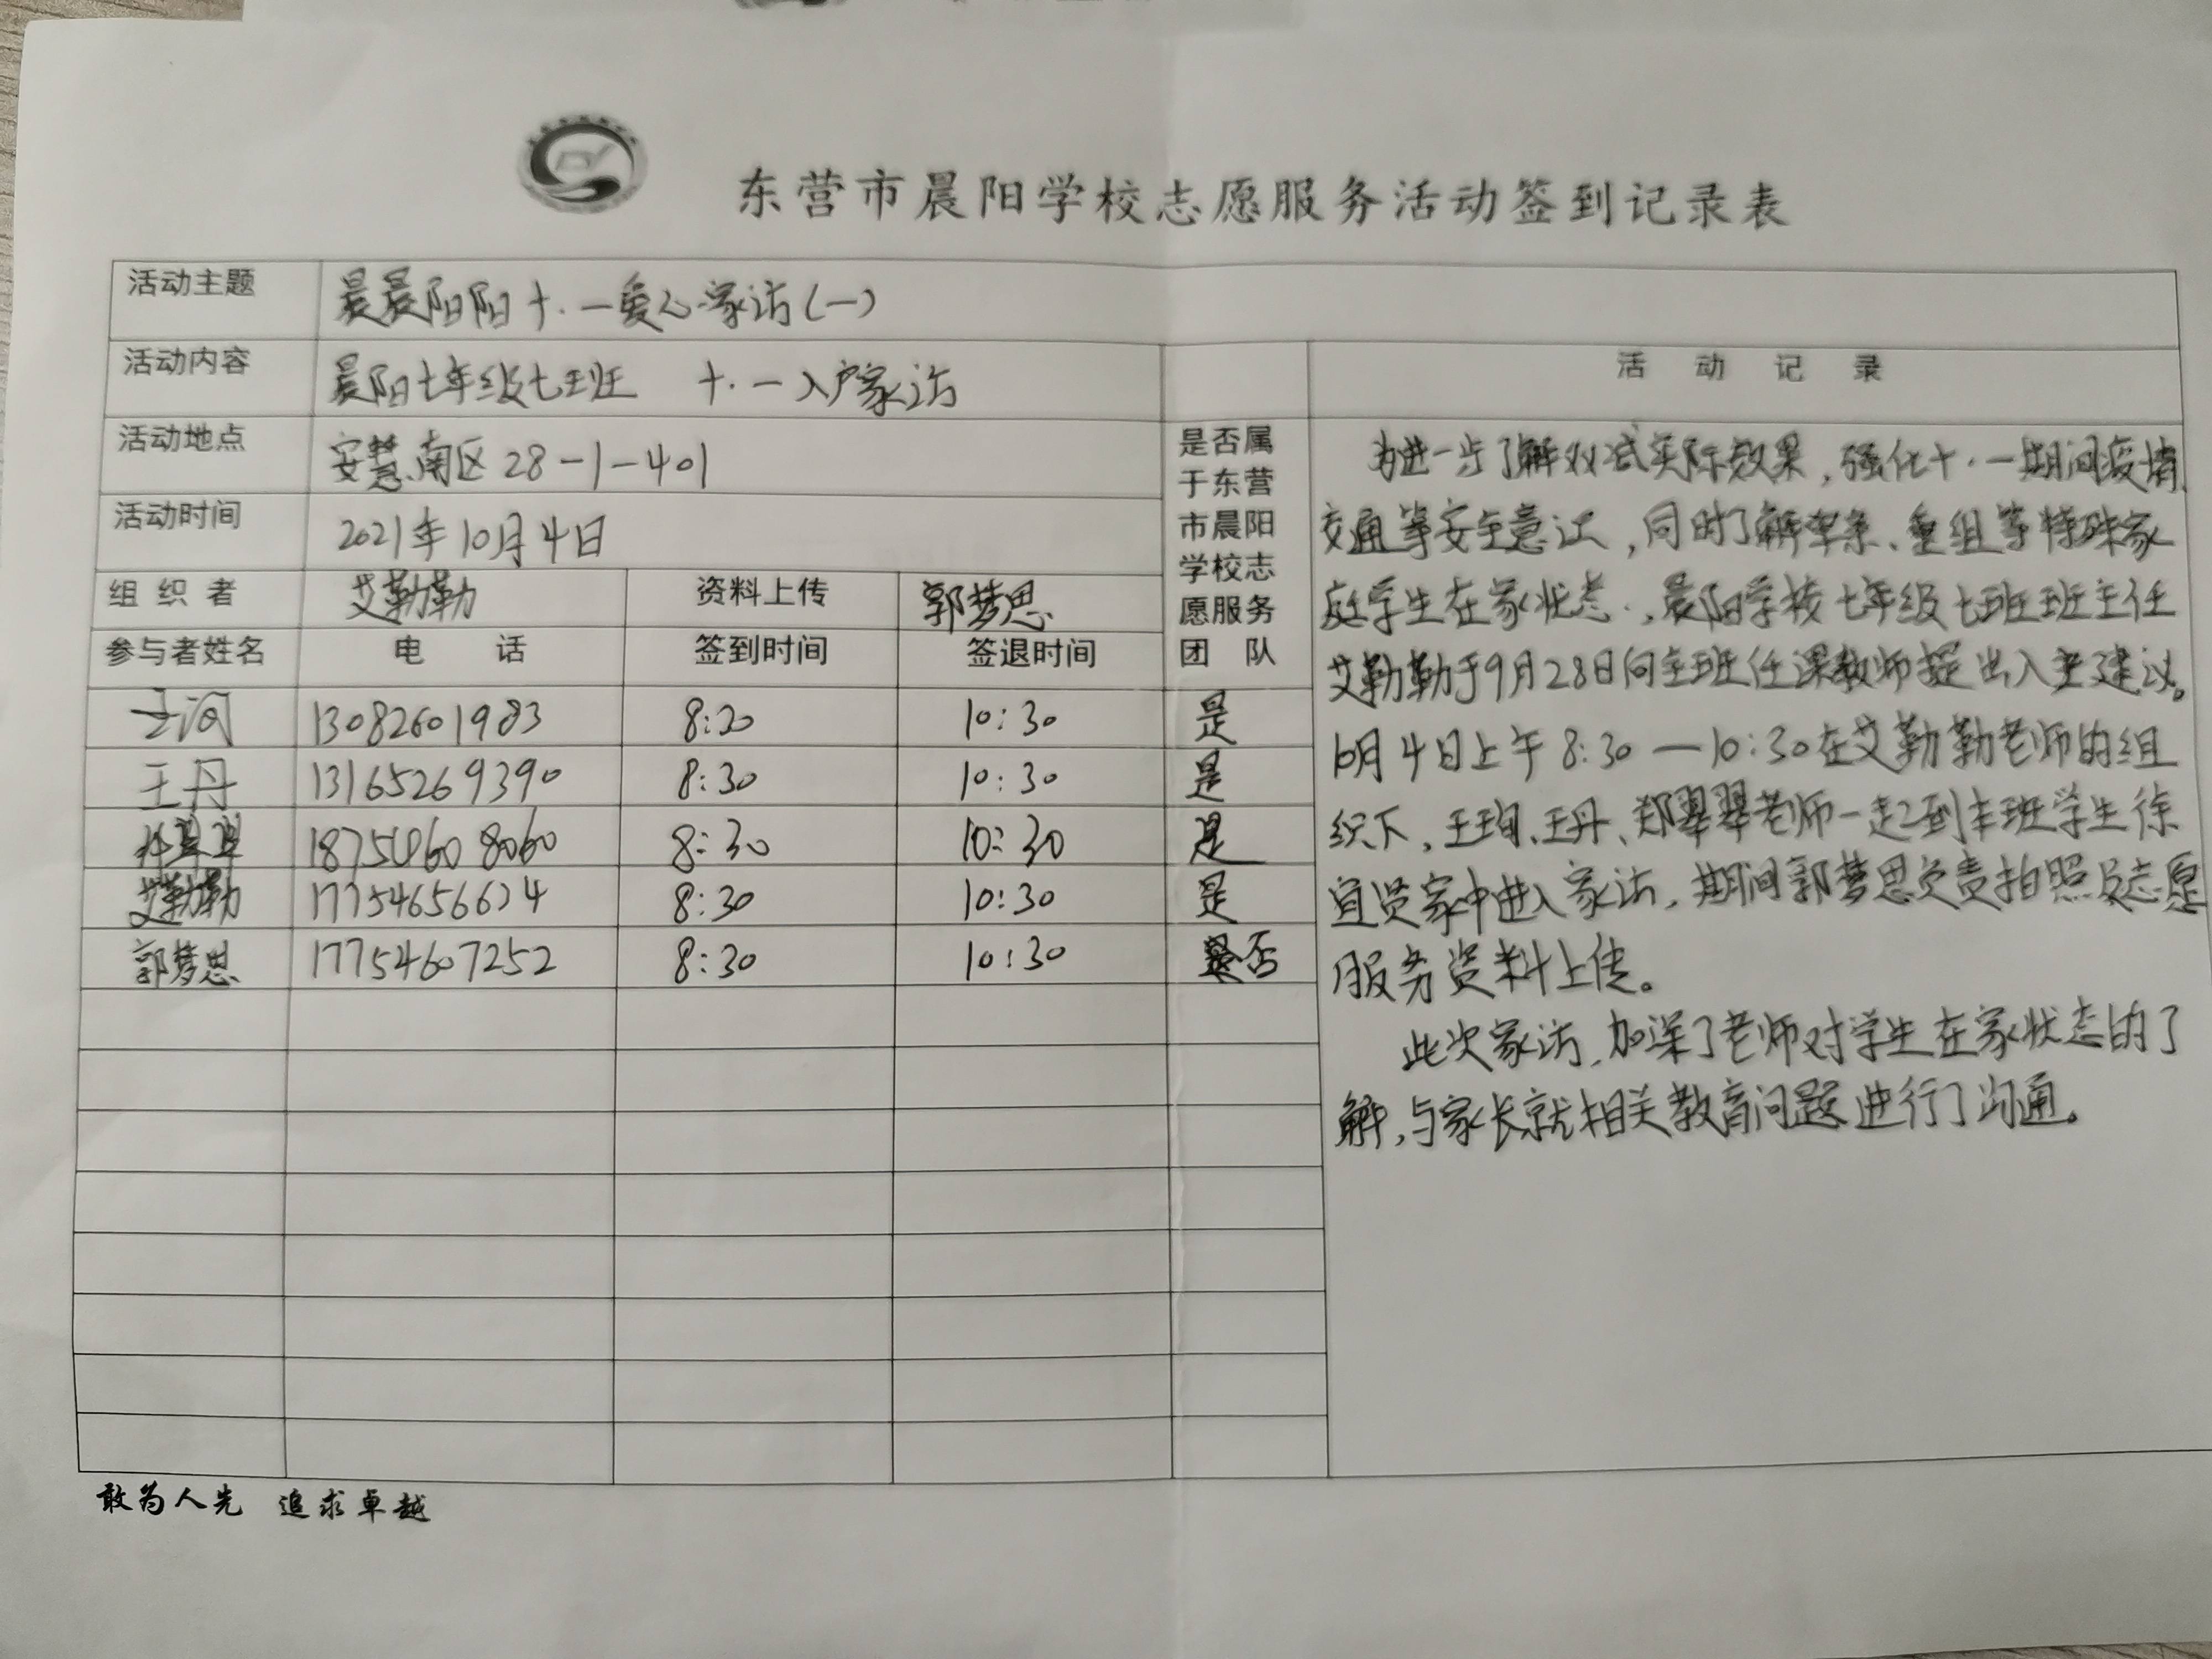 东营市晨阳学校志愿服务活动签到记录表
活动主题 晨晨阳阳十·一爱心家访(一)
活动内容 晨阳七年级七班 十·一入户家访
活动地点 安慧南区28-1-401
活动时间 2021年10月4日
组织者 艾勤勤 资料上传 郭梦思
参与者姓名 电话 签到时间 签退时间
是否属
于东营
市晨阳
学校志
愿服务
团队
王洵 13082601983 8:20 10:30 是
王丹 13165269390 8:30 10:30 是
18754608060 8:30 10:30 是
艾勤勤 17754656624 8:30 10:30 是
郭梦思 17754607252 8:30 10:30 否
活动记录
为进一步了解双减实际效果,强化十·一期间疫情、
交通等安全意识,同时了解单亲、重组等特殊家
庭学生在家状态,晨阳学校七年级七班班主任
艾勤勤于9月28日向全班任课教师提出入户建议。
10月4日上午8:30—10:30在艾勤勤老师的组
织下,王珣、王丹、郑翠翠老师一起到本班学生徐
宜贤家中进入家访,期间郭梦思负责拍照及志愿
服务资料上传。
此次家访,加深了老师对学生在家状态的了
解,与家长就相关教育问题进行了沟通。
敢为人先 追求卓越